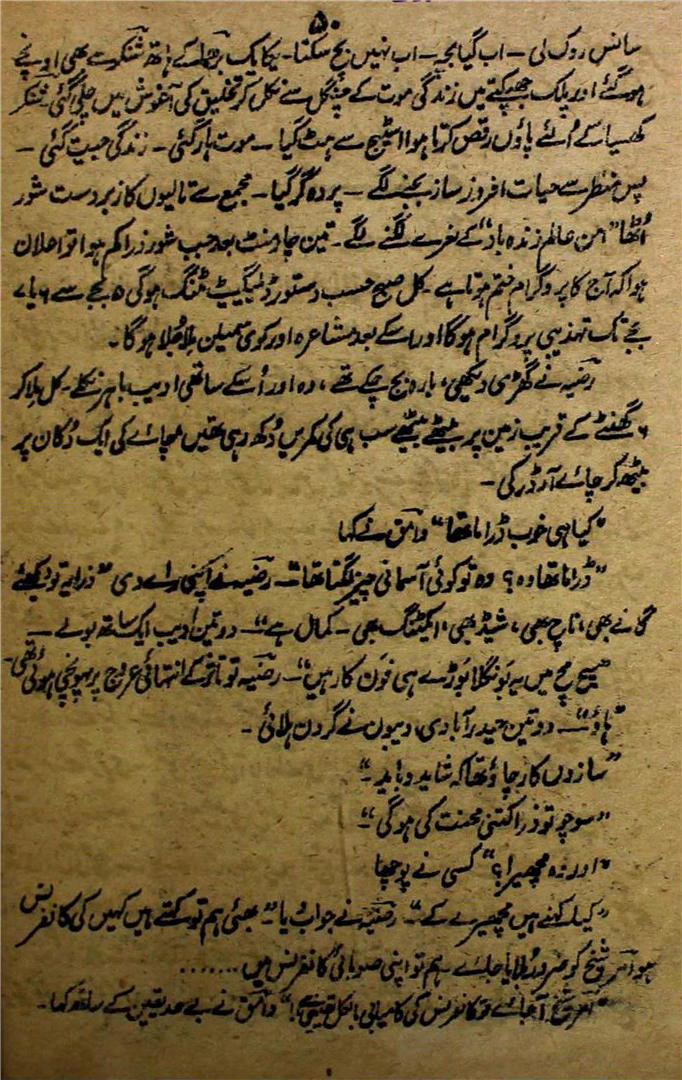 ۵۰
سانس روک لی - اب گیا بچہ - اب نہیں بچ سکتا - یکایک کے ہاتھ شنکر سے بھی اونچے
ہو گئے اور پلک جھپکتے میں زندگی موت کے چنگل سے نکل کر تخلیق کی آغوش میں چلی گئی - شنکر
کھسیا کے اُلٹے پاؤں رقص کرتا ہوا اسٹیج سے ہٹ گیا - موت ہار گئی - زندگی جیت گئی -
پس منظر سے حیات افروز ساز بجنے لگے - پردہ گر گیا - مجمع سے تالیوں کا زبردست شور
اُٹھا "امن عالم زندہ باد" کے نعرے لگنے لگے - تین چار منٹ بعد جب شور ذرا کم ہوا تو اعلان
ہوا کہ آج کا پروگرام ختم ہوتا ہے - کل صبح حسب دستور ڈیلیگیٹ ٹنگ ہوگی ۵ بجے سے ۶ یا ۷
بجے تک تہذیبی پروگرام ہوگا اور اسکے بعد مشاعرہ اور کوی سمیلن مِلا جُلا ہوگا -
رضیہ نے گھڑی دیکھی، بارہ بج چکے تھے، وہ اور اُسکے ساتھی ادیب باہر نکلے - کل ملا کر
۶ گھنٹے کے قریب زمین پر بیٹھے بیٹھے سب ہی کی کمریں دُکھ رہی تھیں چائے کی ایک دُکان پر
بیٹھ کر چائے آرڈر کی -
"کیا ہی خوب ڈراما تھا" وامق نے کہا
"ڈراما تھا وہ؟ وہ تو کوئی آسمانی چیز لگتا تھا" - رضیہ نے اپنی رائے دی "ذرا یہ تو دیکھئے
گانے بھی، ناچ بھی، شیڈ بھی، ایکٹنگ بھی - کمال ہے" - دو تین ادیب ایک ساتھ بولے -
"سچ مچ میں یہ بنگلا بڑے ہی فن کار ہیں" - رضیہ تو تاثر کے انتہائی عروج پر پہونچی ہوئی تھی -
"ہاؤ" - دو تین حیدرآبادی ادیبوں نے گردن ہلائی -
"سازوں کا رچاؤ تھا کہ شاید و باید -"
"سوچو تو ذرا کتنی محنت کی ہوگی" -
"اور وہ مچھیرا؟" کسی نے پوچھا
"کیا کہنے ہیں مچھیرے کے" - رضیہ نے جواب دیا - "بھئی ہم تو کہتے ہیں کہیں کی کانفرنس
ہو شیخ کو ضرور بُلایا جائے - ہم تو اپنی صوبائی کانفرنس میں .......
شیخ آ جائے تو کانفرنس کی کامیابی بالکل یقینی ہے!" وامق نے بے حد یقین کے ساتھ کہا -